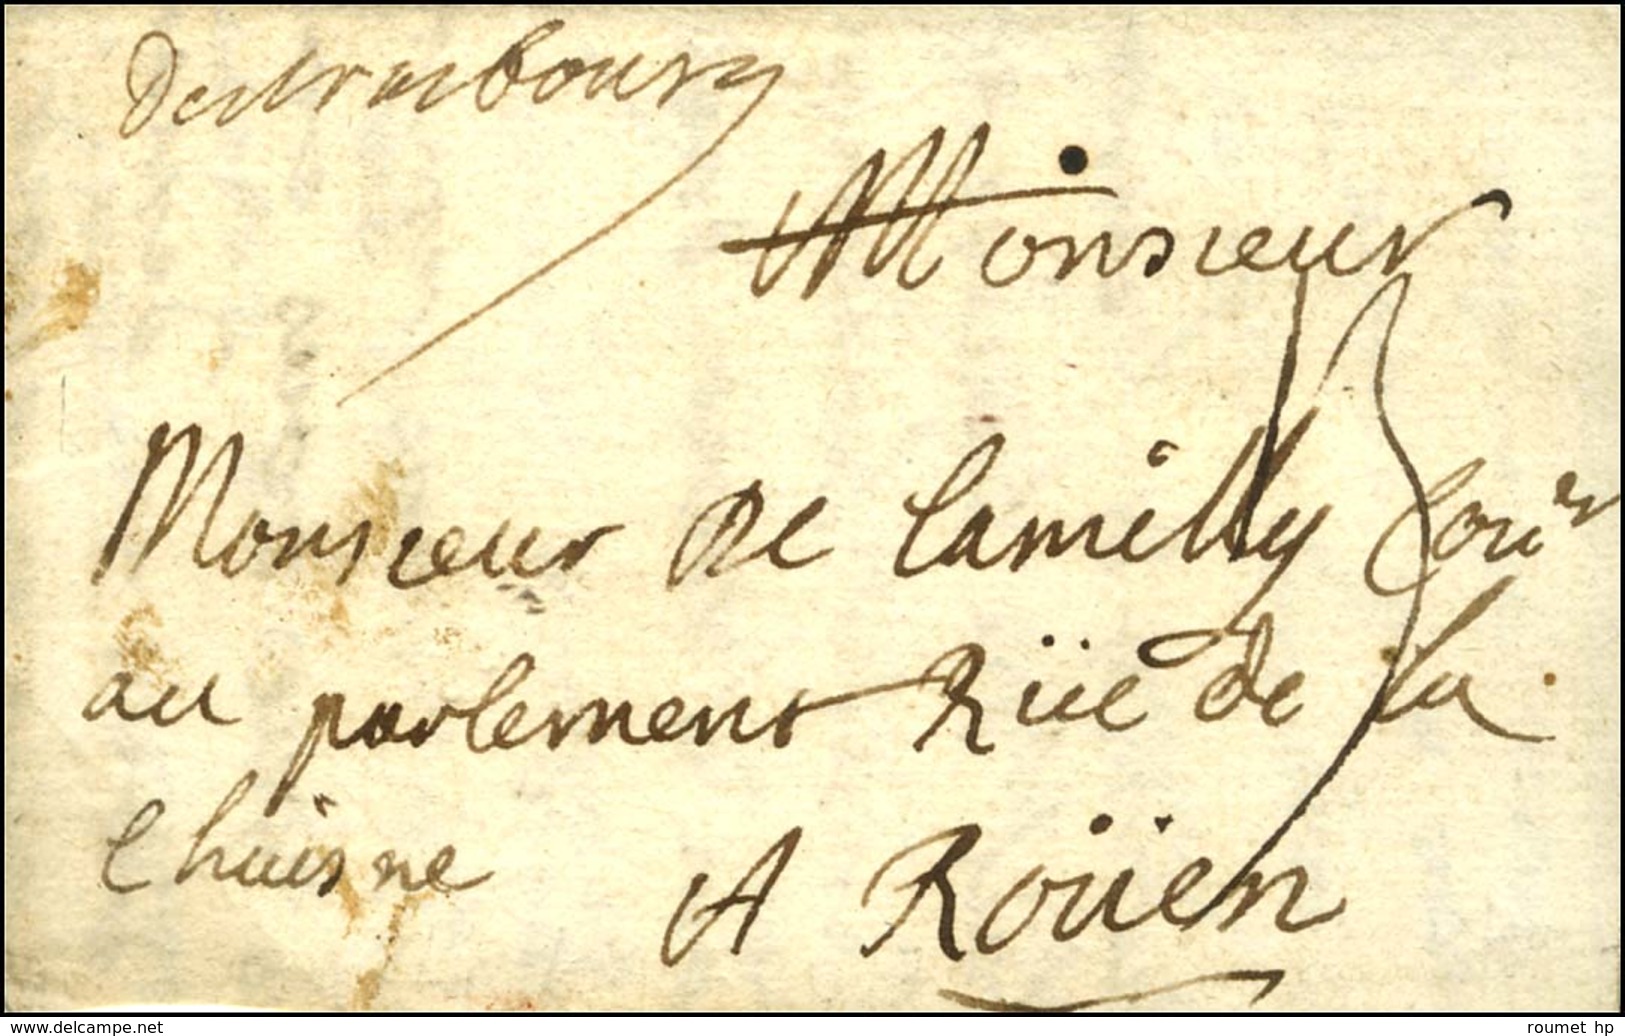 Destrasbourg
Monsieur
Monsieur De Camilly Con.er
au parlement Rüe de la
chaisne
A Roüen
delcampe.net
roumet hp